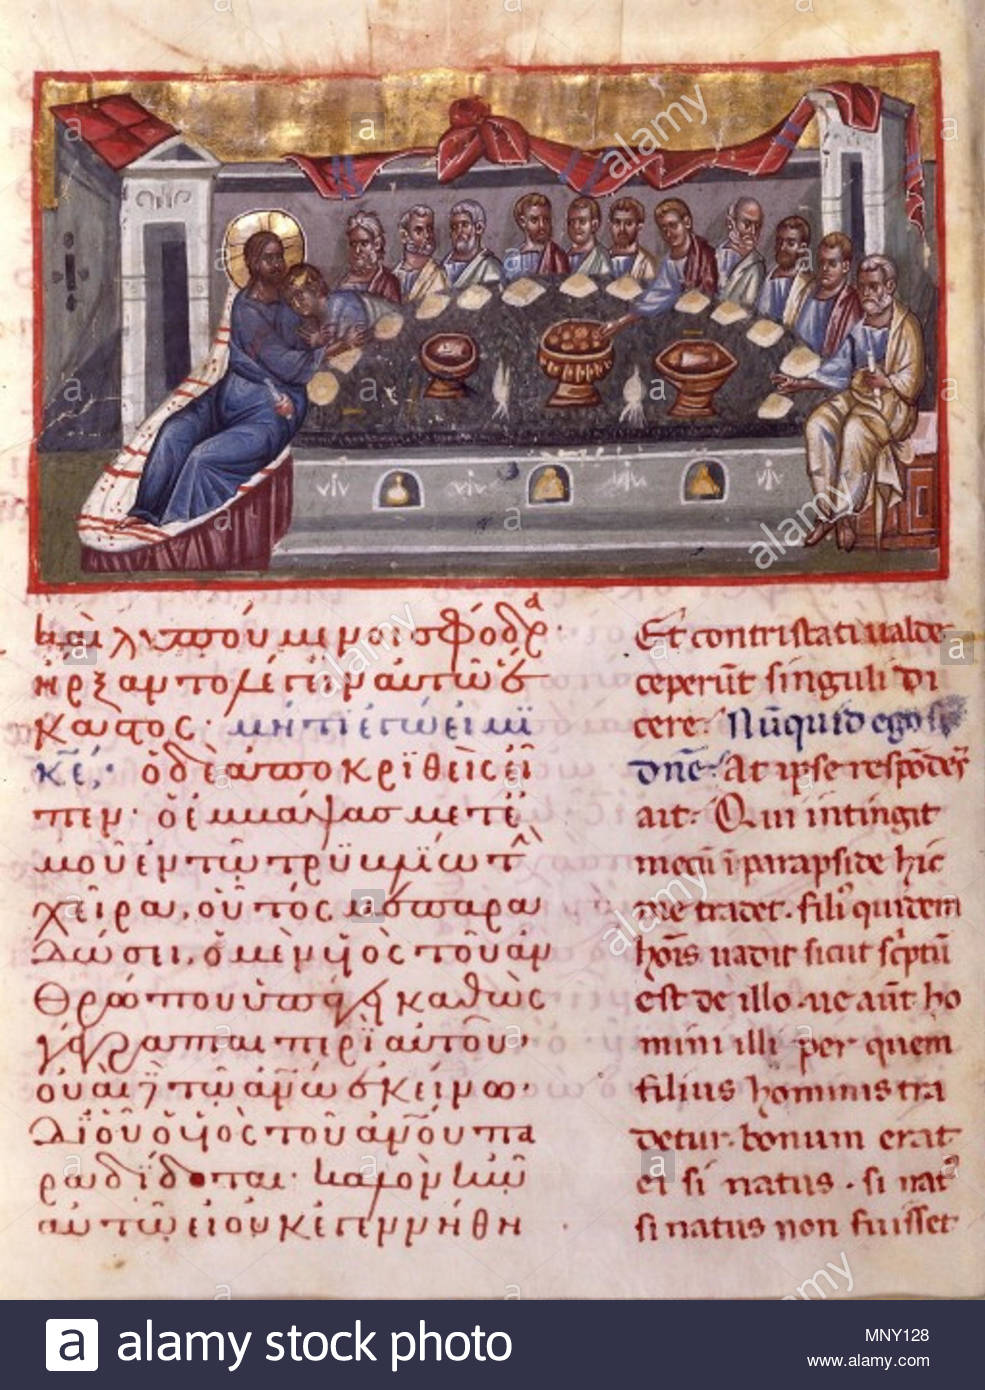 καὶ λυπούμενοι σφόδρα
ἤρξαντο λέγειν αὐτῷ
καστος· μήτι ἐγώ εἰμι
κ̅ε̅; ὁ δὲ ἀποκριθεὶς εἶ
πεν· ὁ ἐμβάψας μετ' ἐ
μοῦ ἐν τῷ τρυβλίῳ τὴν
χεῖρα, οὗτός με παρα
δώσει, ὁ μὲν υἱὸς τοῦ ἀν
θρώπου ὑπάγει καθὼς
γέγραπται περὶ αὐτοῦ·
οὐαὶ δὲ τῷ ἀν̅ω̅ ἐκείνω·
δι' οὗ ὁ υἱὸς τοῦ ἀν̅ο̅υ̅ πα
ραδίδοται· καλὸν ἦν
αὐτῷ εἰ οὐκ ἐγεννήθη
Et contristati ualde
ceperu̅t singuli di
cere. Nu̅quid ego s
dn̅e. At ipse respo̅de̅s
ait. Qui intingit
mecu̅ i̅ parapside hic
me tradet. fili' quidem
ho̅is uadit sicut sc̅ptu̅
est de illo. ue aut̅ ho
mini illi per quem
filius hominis tra
detur. bonum erat
ei si natus. si nat'
si natus non fuisset
alamy
alamy
alamy
alamy
alamy
alamy
a alamy stock photo
MNY128
www.alamy.com